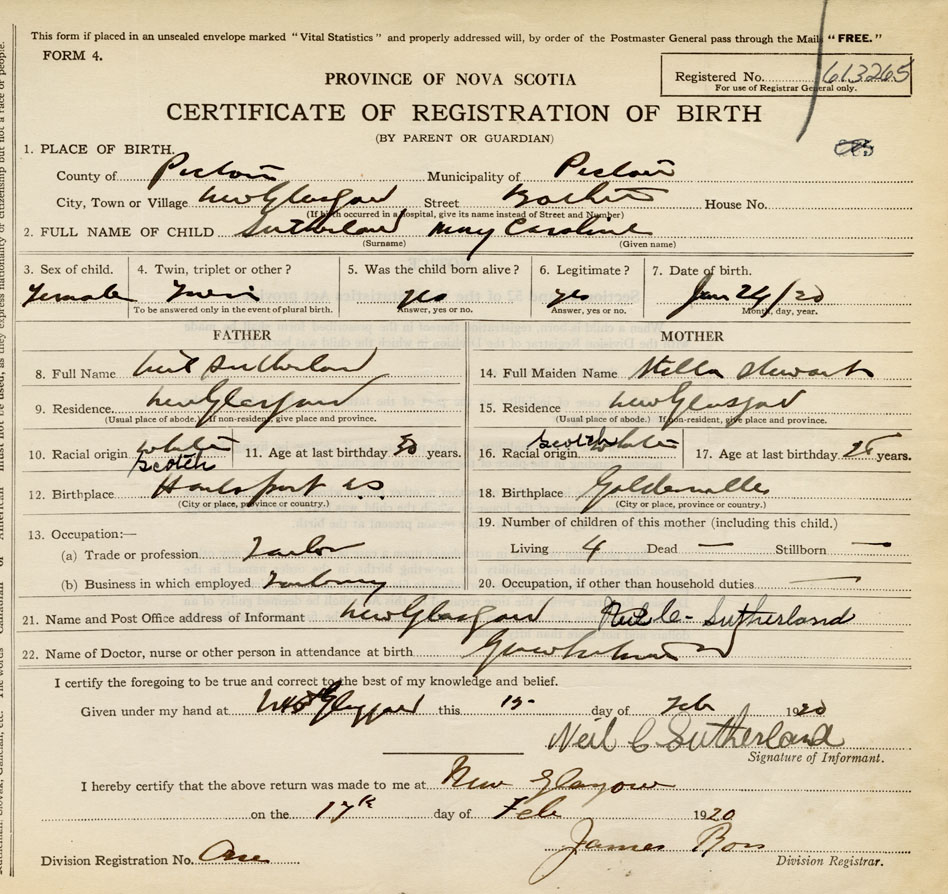 This form if placed in an unsealed envelope marked "Vital Statistics" and properly addressed will, by order of the Postmaster General pass through the Mails "FREE."
FORM 4.
PROVINCE OF NOVA SCOTIA
Registered No. 613265
For use of Registrar General only.
CERTIFICATE OF REGISTRATION OF BIRTH
(BY PARENT OR GUARDIAN)
1. PLACE OF BIRTH.
County of Pictou Municipality of Pictou
City, Town or Village New Glasgow Street House No.
(If birth occurred in a hospital, give its name instead of Street and Number)
2. FULL NAME OF CHILD Sutherland Mary Caroline
(Surname) (Given name)
3. Sex of child. 4. Twin, triplet or other? 5. Was the child born alive? 6. Legitimate? 7. Date of birth.
Female Twin yes yes Jan 24/20
To be answered only in the event of plural birth. Answer, yes or no. Answer, yes or no. Month, day, year.
FATHER MOTHER
8. Full Name Neil Sutherland 14. Full Maiden Name Stella Stewart
9. Residence. New Glasgow 15. Residence New Glasgow
(Usual place of abode. If non-resident, give place and province. (Usual place of abode.) If non-resident, give place and province.
10. Racial origin white scotch 11. Age at last birthday 30 years. 16. Racial origin scotch white 17. Age at last birthday years.
12. Birthplace Hantsport N.S. 18. Birthplace Goldenville
(City or place, province or country.) (City or place, province or country.)
13. Occupation:— 19. Number of children of this mother (including this child.)
(a) Trade or profession Tailor Living 4 Dead — Stillborn —
(b) Business in which employed 20. Occupation, if other than household duties —
21. Name and Post Office address of Informant New Glasgow Neil C. Sutherland
22. Name of Doctor, nurse or other person in attendance at birth
I certify the foregoing to be true and correct to the best of my knowledge and belief.
Given under my hand at Glasgow this day of Feb 1920
Neil C Sutherland
Signature of Informant.
I hereby certify that the above return was made to me at New Glasgow
on the 17th day of Feb 1920
James Ross
Division Registration No. One Division Registrar.